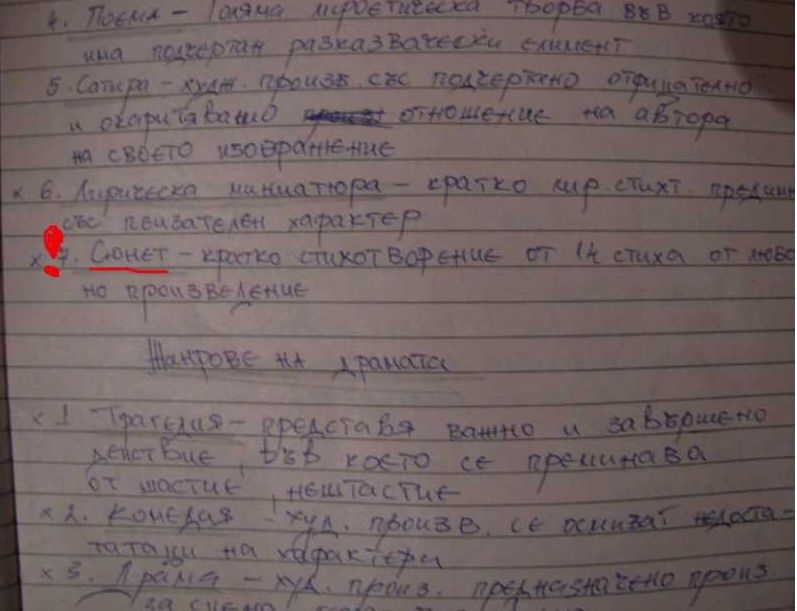 4. Поема - Голяма лироепическа творба във която
има подчертан разказвачески елимент
5. Сатира - худж. произв. със подчертано отрицателно
и окаритавано отношение на автора
на своето изображение
x 6. Лирическа миниатюра - кратко лир. стихт.
със пеизателен характер
x 7. Сюнет - кратко стихотворение от 14 стиха от любо
но произведение
Жанрове на драмата
x 1 Трагедия - представя важно и завършено
действие, във което се преминава
от шастие, нештастие
x 2. Комедия - худ. произв. се осмизат недоста-
татаци на характери
x 3. Драма - худ. произ. предназначено произ.
за сцена